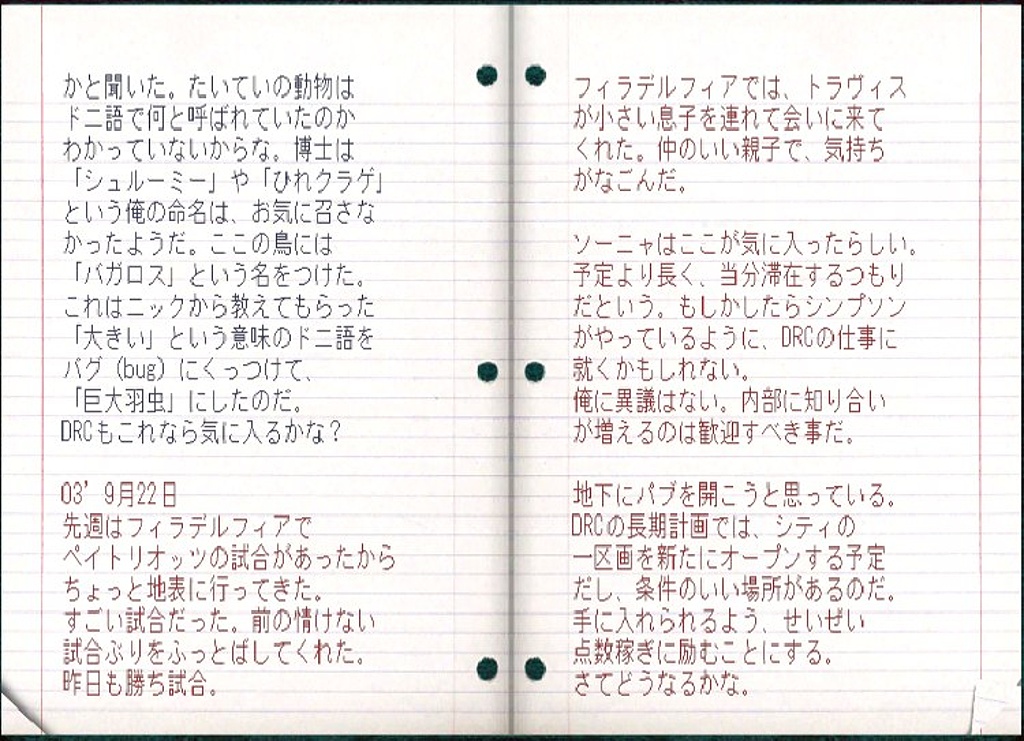 かと聞いた。たいていの動物は
ドニ語で何と呼ばれていたのか
わかっていないからな。博士は
「シュルーミー」や「ひれクラゲ」
という俺の命名は、お気に召さな
かったようだ。ここの鳥には
「バガロス」という名をつけた。
これはニックから教えてもらった
「大きい」という意味のドニ語を
バグ（bug）にくっつけて、
「巨大羽虫」にしたのだ。
DRCもこれなら気に入るかな？
03’9月22日
先週はフィラデルフィアで
ペイトリオッツの試合があったから
ちょっと地表に行ってきた。
すごい試合だった。前の情けない
試合ぶりをふっとばしてくれた。
昨日も勝ち試合。
フィラデルフィアでは、トラヴィス
が小さい息子を連れて会いに来て
くれた。仲のいい親子で、気持ち
がなごんだ。
ソーニャはここが気に入ったらしい。
予定より長く、当分滞在するつもり
だという。もしかしたらシンプソン
がやっているように、DRCの仕事に
就くかもしれない。
俺に異議はない。内部に知り合い
が増えるのは歓迎すべき事だ。
地下にパブを開こうと思っている。
DRCの長期計画では、シティの
一区画を新たにオープンする予定
だし、条件のいい場所があるのだ。
手に入れられるよう、せいぜい
点数稼ぎに励むことにする。
さてどうなるかな。